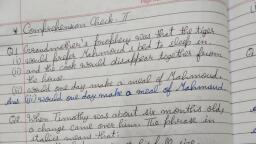 * Comprehension Check - II
Q1 Grandmother's prophecy was that the tiger
(i) would prefer Mahmoud's bed to sleep in
(ii) and the cook would disappear together from
the house.
(iii) would one day make a meal of Mahmoud.
Ans (iii) would one day make a meal of Mahmoud
Q2 When Timothy was about six months old,
a change came over him. The phrase in
italics means that: